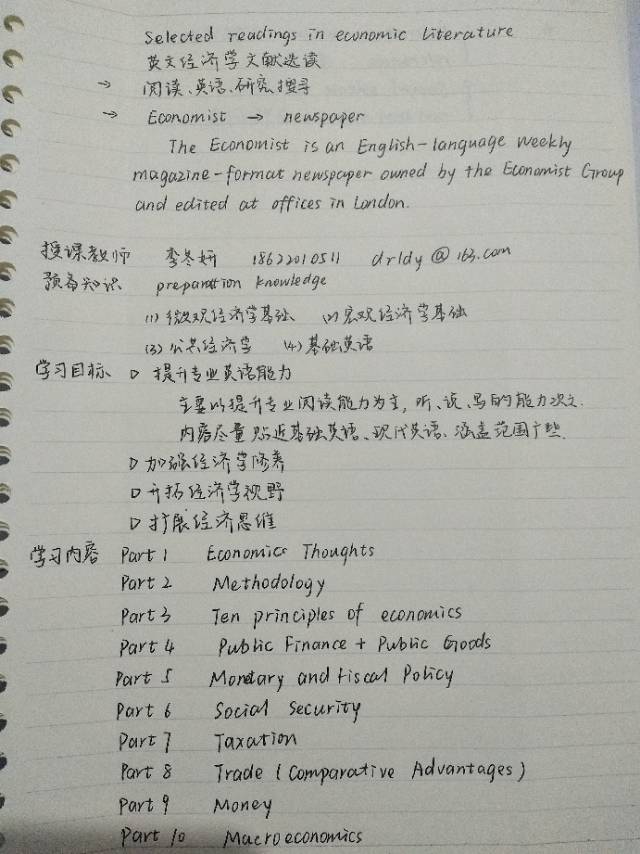 Selected readings in economic literature
英文经济学文献选读
→ 阅读、英语、研究、搜寻
→ Economist → newspaper
The Economist is an English-language weekly
magazine-format newspaper owned by the Economist Group
and edited at offices in London.
授课教师 李冬妍 18622010511 drldy@163.com
预备知识 preparation knowledge
(1) 微观经济学基础 (2) 宏观经济学基础
(3) 公共经济学 (4) 基础英语
学习目标 ▷ 提升专业英语能力
主要以提升专业阅读能力为主, 听、说、写的能力次之.
内容尽量贴近基础英语、现代英语、涵盖范围广些.
▷ 加强经济学修养
▷ 开拓经济学视野
▷ 扩展经济思维
学习内容 Part 1 Economics Thoughts
Part 2 Methodology
Part 3 Ten principles of economics
Part 4 Public Finance + Public Goods
Part 5 Monetary and Fiscal Policy
Part 6 Social Security
Part 7 Taxation
Part 8 Trade (Comparative Advantages)
Part 9 Money
Part 10 Macroeconomics